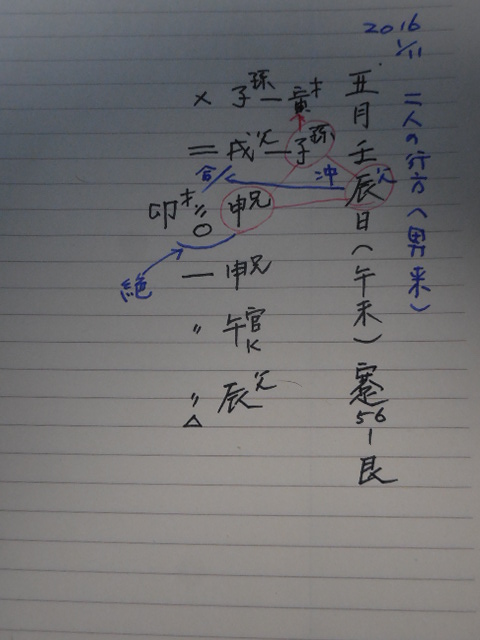 2016
1/11
二人の行方(男来)
丑月壬辰父日(午未)蹇56ー艮
× 子孫ー寅才
〃 戌父ー子孫
合 冲
卯才〃 申兄
○
絶
ー 申兄
〃 午官
K
〃 辰父
△